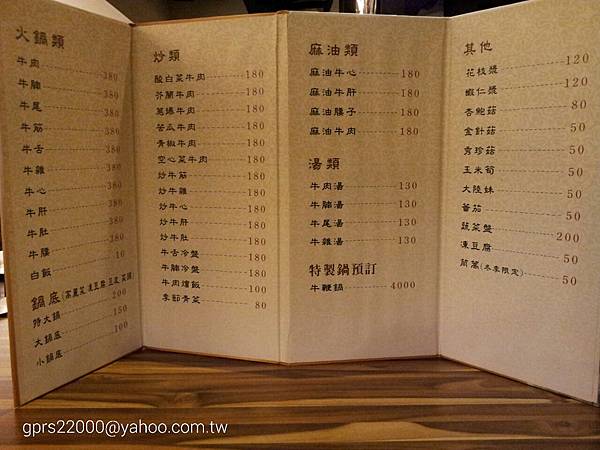 火鍋類
牛肉 380
牛腩 380
牛尾 380
牛筋 380
牛舌 380
牛雜 380
牛心 380
牛肝 380
牛肚 380
牛腰 380
白飯 10
鍋底(高麗菜 凍豆腐 豆皮 菜頭)
特大鍋 200
大鍋底 150
小鍋底 100
炒類
酸白菜牛肉 180
芥蘭牛肉 180
蔥爆牛肉 180
苦瓜牛肉 180
青椒牛肉 180
空心菜牛肉 180
炒牛筋 180
炒牛雜 180
炒牛心 180
炒牛肝 180
炒牛肚 180
牛舌冷盤 180
牛腩冷盤 180
牛肉燴飯 100
季節青菜 80
麻油類
麻油牛心 180
麻油牛肝 180
麻油腰子 180
麻油牛肉 180
湯類
牛肉湯 130
牛腩湯 130
牛尾湯 130
牛雜湯 130
特製鍋預訂
牛鞭鍋 4000
其他
花枝漿 120
蝦仁漿 120
杏鮑菇 80
金針菇 50
秀珍菇 50
玉米筍 50
大陸妹 50
蕃茄 50
蔬菜盤 200
凍豆腐 50
茼蒿(冬季限定) 50
gprs22000@yahoo.com.tw